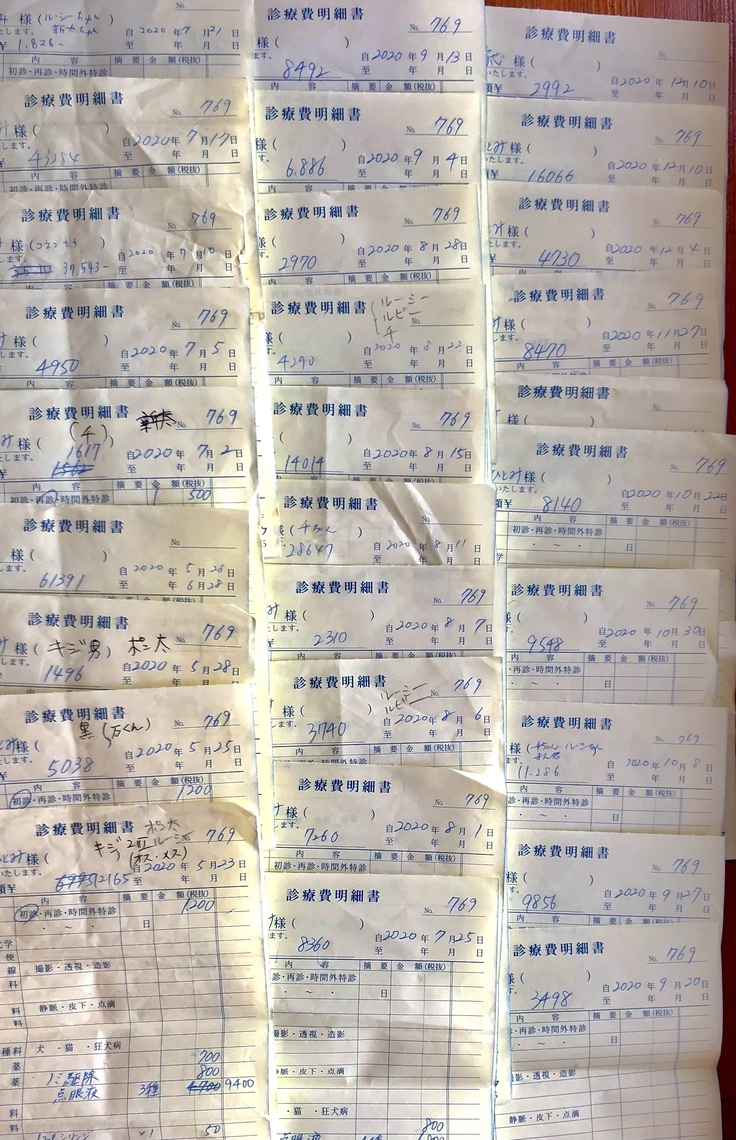 様(ルーシーちゃん
自2020年7月21日
¥1,826-
至 年 月 日
初診・再診・時間外特診 摘要 金額(税抜)
診療費明細書
No. 769
様( )
自2020年7月17日
43284
至 年 月 日
初診・再診・時間外特診
診療費明細書
No. 769
様(
自2020年7月10日
37,543-
至 年 月 日
内容 摘要 金額(税抜)
診療費明細書
No. 769
様( )
自2020年7月5日
4950
至 年 月 日
内容 摘要 金額(税抜)
診療費明細書
769
み様(チ)
1617
自2020年7月2日
至 年 月 日
内容 摘要 金額(税抜)
初診・再診・時間外特診 1 500
診療費明細書
No.
様( )
自2020年5月28日
61391
至 6月28日
内容 摘要 金額(税抜)
診療費明細書
No. 769
様(キジ男) ポン太
1496
自2020年5月28日
至 年 月 日
内容 摘要 金額(税抜)
診療費明細書
No. 769
とみ様( 黒(万くん)
5038
自2020年5月25日
至 年 月 日
内容 摘要 金額(税抜)
初診・再診・時間外特診 1200
診療費明細書
ポン太
769
とみ様(
キジ2匹ルーシー
(オス・メス)
自2020年5月23日
12165
至 年 月 日
内容 摘要 金額(税抜)
初診・再診・時間外特診 1200
・ ~ ・ 日
撮影・透視・造影
静脈・皮下・点滴
犬・猫・狂犬病
700
ノミ駆除 800
点眼液 3種 9400
×1 50
No. 769
様( )
自2020年9月13日
8492
至 年 月 日
内容 摘要 金額(税抜)
診療費明細書
No. 769
様( )
自2020年9月4日
6.886
至 年 月 日
内容 摘要 金額(税抜)
診療費明細書
No. 769
様( )
自2020年8月28日
2970
至 年 月 日
内容 摘要 金額(税抜)
診療費明細書
ルーシー
ルビー
チ
No. 769
自2020年8月22日
4290
至 年 月 日
内容 摘要 金額(税抜)
診療費明細書
No. 769
( )
自2020年8月15日
14014
至 年 月 日
内容 摘要 金額(税抜)
診療費明細書
No.
様(チちゃん
自2020年8月11日
28647
至 年 月 日
内容 摘要 金額(税抜)
診療費明細書
No. 769
み様( )
自2020年8月7日
2310
至 年 月 日
内容 摘要 金額(税抜)
診療費明細書
ルーシー
ルビー
No. 769
様(
自2020年8月6日
3740
至 年 月 日
内容 摘要 金額(税抜)
初診・再診・時間外特診
診療費明細書
No. 769
様( )
自2020年8月1日
7260
至 年 月 日
内容 摘要 金額(税抜)
初診・再診・時間外特診
診療費明細書
No. 769
様( )
自2020年7月25日
8360
至 年 月 日
内容 摘要 金額(税抜)
初診・再診・時間外特診
・ ~ ・ 日
撮影・透視・造影
静脈・皮下・点滴
・猫・狂犬病
800
診療費明細書
No.
様( )
自2020年12月10日
いたします。
2992
至 年 月 日
内容 摘要 金額(税抜)
診療費明細書
No. 769
( )
自2020年12月10日
16066
至 年 月 日
内容 摘要 金額(税抜)
診療費明細書
No. 769
とみ様( )
自2020年12月4日
4730
至 年 月 日
診療費明細書
No. 769
様( )
自2020年11月27日
8470
至 年 月 日
内容 摘要 金額(税抜)
診療費明細書
No.
様( )
診療費明細書
No. 769
ひとみ様( )
自2020年10月22日
いたします。
8140
至 年 月 日
内容 摘要 金額(税抜)
初診・再診・時間外特診
・ ~ ・ 日
診療費明細書
No. 769
様( )
自2020年10月30日
9548
至 年 月 日
内容 摘要 金額(税抜)
・再診・時間外特診
・ ~ ・ 日
診療費明細書
No. 769
様(
自2020年10月8日
11.286
至 年 月 日
内容 摘要 金額(税抜)
初診・再診・時間外特診
・ ~ ・ 日
診療費明細書
No. 769
様( )
自2020年9月27日
9856
至 年 月 日
内容 摘要 金額(税抜)
初診・再診・時間外特診
診療費明細書
No. 769
様( )
自2020年9月20日
3498
至 年 月 日
内容 摘要 金額(税抜)
・再診・時間外特診
・ ~ ・ 日
影・透視・造影
静脈・皮下・点滴